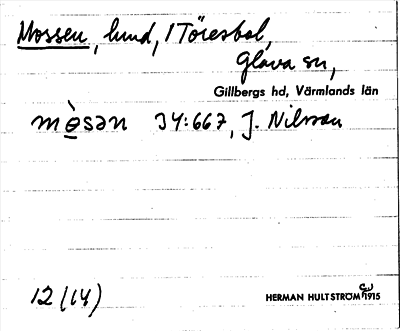 Mossen, lund, i Töresbol,
Glava sn,
Gillbergs hd, Värmlands län
mè̱sən 34:667, J. Nilsson
12 (14)
HERMAN HULTSTRÖM 1915